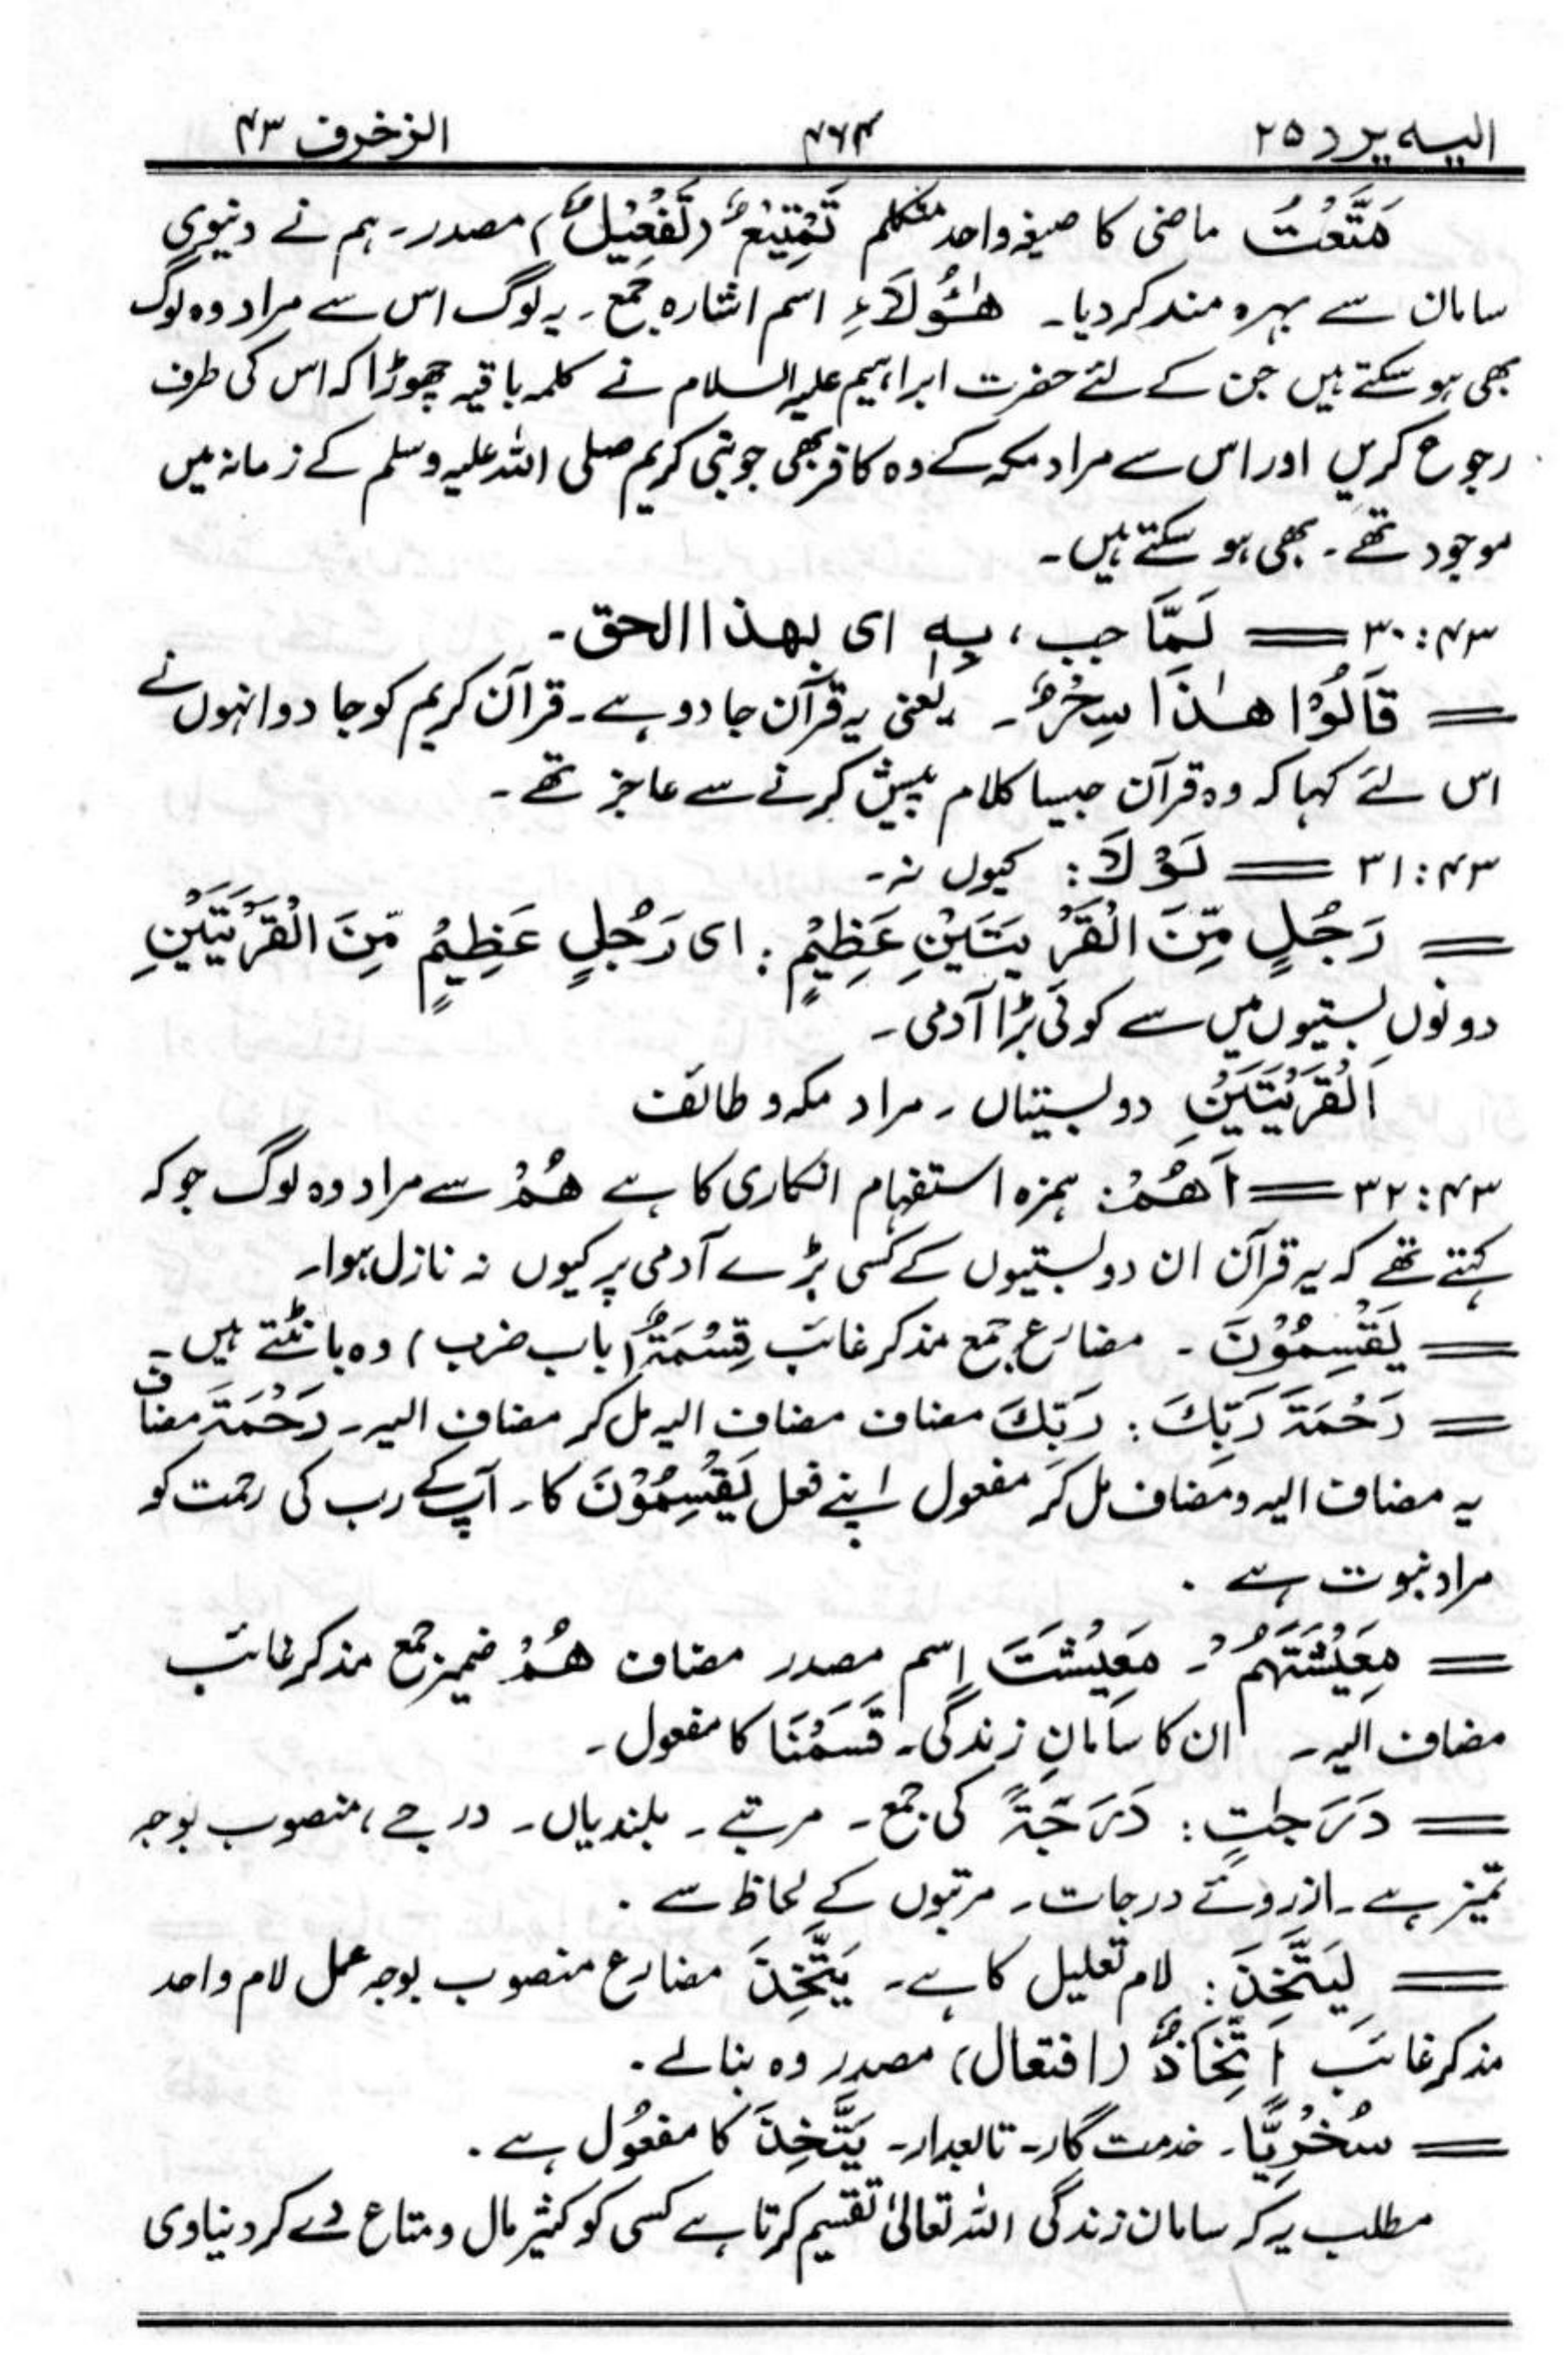 الیہ یرد ۲۵ ۴۶۴ الزخرف ۴۳
مَتَّعْتُ ماضی کا صیغہ واحد متکلم تَمْتِیْعٌ (تَفْعِیْلٌ) مصدر۔ ہم نے دنیوی
سامان سے بہرہ مند کر دیا۔ ھٰٓؤُلَآءِ اسم اشارہ جمع۔ یہ لوگ اس سے مراد وہ لوگ
بھی ہو سکتے ہیں جن کے لئے حضرت ابراہیم علیہ السلام نے کلمہ باقیہ چھوڑا کہ اس کی طرف
رجوع کریں اور اس سے مراد مکہ کے وہ کافر بھی جو نبی کریم صلی اللہ علیہ وسلم کے زمانہ میں
موجود تھے۔ بھی ہو سکتے ہیں۔
۴۳: ۳۰ = لَمَّا جب، بِہٖ ای بھذا الحق۔
= قَالُوْا ھٰذَا سِحْرٌ۔ یعنی یہ قرآن جادو ہے۔ قرآن کریم کو جادو انہوں نے
اس لئے کہا کہ وہ قرآن جیسا کلام پیش کرنے سے عاجز تھے۔
۴۳: ۳۱ = لَوْلَا: کیوں نہ۔
= رَجُلٍ مِّنَ الْقَرْیَتَیْنِ عَظِیْمٍ: ای رَجُلٍ عَظِیْمٍ مِّنَ الْقَرْیَتَیْنِ
دونوں بستیوں میں سے کوئی بڑا آدمی۔
اَلْقَرْیَتَیْنِ دو بستیاں۔ مراد مکہ و طائف
۴۳: ۳۲ = اَھُمْ: ہمزہ استفہام انکاری کا ہے ھُمْ سے مراد وہ لوگ جو کہ
کہتے تھے کہ یہ قرآن ان دو بستیوں کے کسی بڑے آدمی پر کیوں نہ نازل ہوا۔
= یَقْسِمُوْنَ۔ مضارع جمع مذکر غائب قِسْمَۃٌ (باب ضرب) وہ بانٹتے ہیں۔
= رَحْمَۃَ رَبِّکَ: رَبِّکَ مضاف مضاف الیہ مل کر مضاف الیہ۔ رَحْمَۃَ مضاف
یہ مضاف الیہ و مضاف مل کر مفعول اپنے فعل یَقْسِمُوْنَ کا۔ آپ کے رب کی رحمت کو
مراد نبوت ہے۔
= مَعِیْشَتَہُمْ۔ مَعِیْشَتَ اسم مصدر مضاف ھُمْ ضمیر جمع مذکر غائب
مضاف الیہ۔ ان کا سامانِ زندگی۔ قَسَمْنَا کا مفعول۔
= دَرَجٰتٍ: دَرَجَۃً کی جمع۔ مرتبے۔ بلندیاں۔ درجے، منصوب بوجہ
تمیز ہے۔ ازروئے درجات۔ مرتبوں کے لحاظ سے۔
= لِیَتَّخِذَ: لام تعلیل کا ہے۔ یَتَّخِذَ مضارع منصوب بوجہ عمل لام واحد
مذکر غائب اِتِّخَاذٌ (افتعال) مصدر وہ بنا لے۔
= سُخْرِیًّا۔ خدمت گار۔ تابعدار۔ یَتَّخِذَ کا مفعُول ہے۔
مطلب یہ کہ سامان زندگی اللہ تعالیٰ تقسیم کرتا ہے کسی کو کثیر مال و متاع دے کر دنیاوی